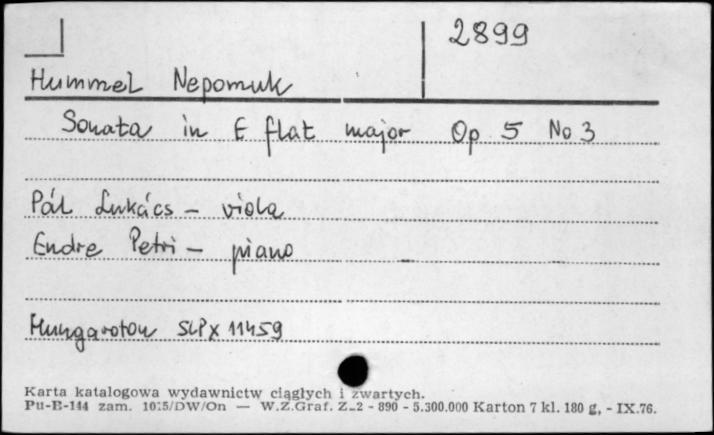 2899
Hummel Nepomuk
Sonata in E flat major Op 5 No 3
Pál Lukács – viola
Endre Petri – piano
Hungaroton SLPX 11459
Karta katalogowa wydawnictw ciągłych i zwartych.
Pu-B-144 zam. 1015/DW/On — W.Z.Graf. Z-2 - 890 - 5.300.000 Karton 7 kl. 180 g, - IX.76.